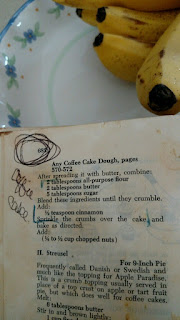 Any Coffee Cake Dough, pages
570-572
After spreading it with butter, combine:
2 tablespoons all-purpose flour
2 tablespoons butter
5 tablespoons sugar
Blend these ingredients until they crumble.
Add:
½ teaspoon cinnamon
Sprinkle the crumbs over the cake, and
bake as directed.
Add:
(¼ to ½ cup chopped nuts)
Coffee
Cake
II. Streusel
For 9-Inch Pie
Frequently called Danish or Swedish and
much like the topping for Apple Paradise.
This is a crumb topping usually served in
place of a top crust on apple or tart fruit
pie, but which does well for coffee cakes.
Melt:
6 tablespoons butter
Stir in and brown lightly: